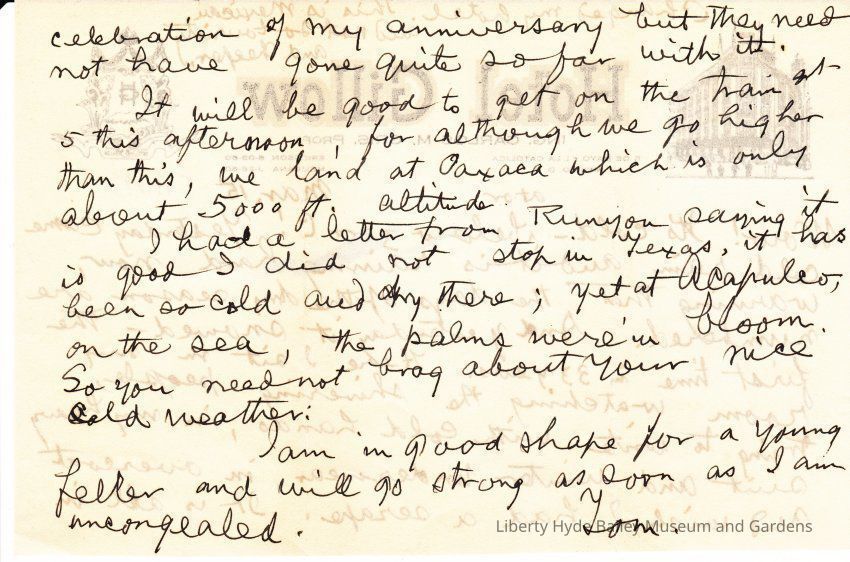 celebration of my anniversary but they need
not have gone quite so far with it.
It will be good to get on the train at
5 this afternoon, for although we go higher
than this, we land at Oaxaca which is only
about 5000 ft. altitude.
I had a letter from Runyon saying it
is good I did not stop in Texas, it has
been so cold and dry there; yet at Acapulco,
on the sea, the palms were in bloom.
So you need not brag about your nice
cold weather.
I am in good shape for a young
feller and will go strong as soon as I am
uncongealed.
Liberty Hyde Bailey Museum and Gardens
Hotel Gillow